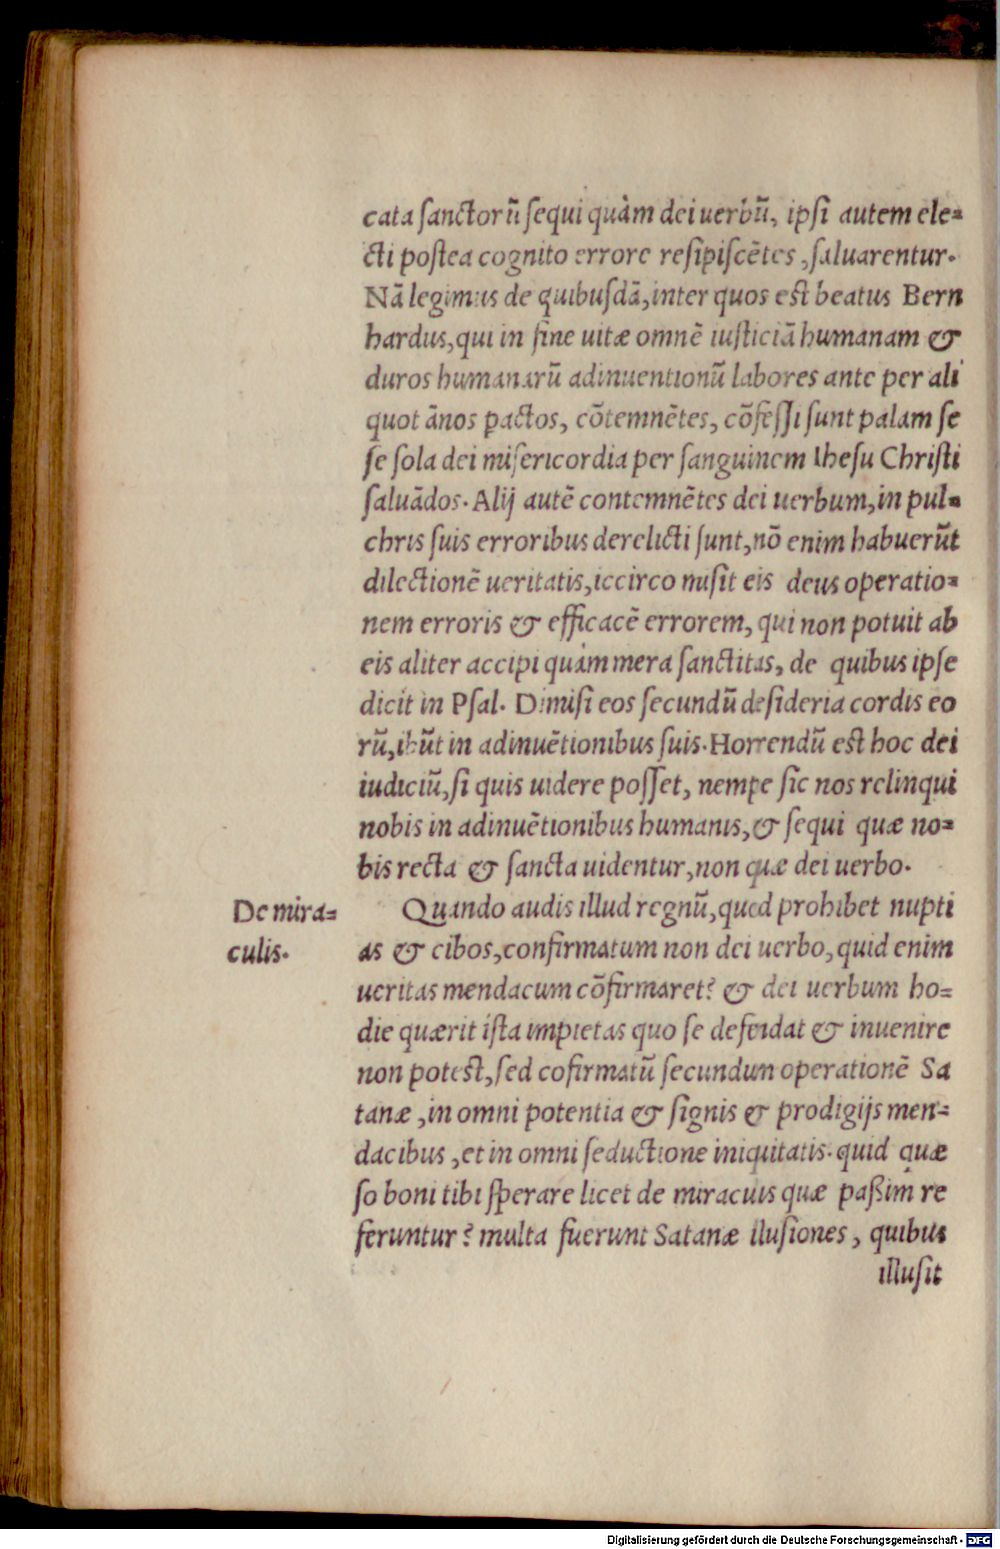 cata sanctorū sequi quàm dei uerbū, ipsi autem ele=
cti postea cognito errore resipiscētes, saluarentur.
Nā legimus de quibusdā, inter quos est beatus Bern
hardus, qui in fine uitæ omnē iusticiā humanam &
duros humanarū adinuentionū labores ante per ali
quot ānos pactos, cōtemnētes, cōfessi sunt palam se
se sola dei misericordia per sanguinem Ihesu Christi
saluādos. Alij autē contemnētes dei uerbum, in pul=
chris suis erroribus derelicti sunt, nō enim habuerūt
dilectionē ueritatis, iccirco misit eis deus operatio=
nem erroris & efficacē errorem, qui non potuit ab
eis aliter accipi quàm mera sanctitas, de quibus ipse
dicit in Psal. Dimisi eos secundū desideria cordis eo
rū, ibūt in adinuētionibus suis. Horrendū est hoc dei
iudiciū, si quis uidere posset, nempe sic nos relinqui
nobis in adinuētionibus humanis, & sequi quæ no=
bis recta & sancta uidentur, non quæ dei uerbo.
De mira=
culis.
Quando audis illud regnū, quod prohibet nupti
as & cibos, confirmatum non dei uerbo, quid enim
ueritas mendacum cōfirmaret? & dei uerbum ho=
die quærit ista impietas quo se defendat & inuenire
non potest, sed cofirmatū secundum operationē Sa
tanæ, in omni potentia & signis & prodigijs men=
dacibus, et in omni seductione iniquitatis. quid quæ
so boni tibi sperare licet de miracuis quæ paßim re
feruntur? multa fuerunt Satanæ ilusiones, quibus
illusit
Digitalisierung gefördert durch die Deutsche Forschungsgemeinschaft - DFG